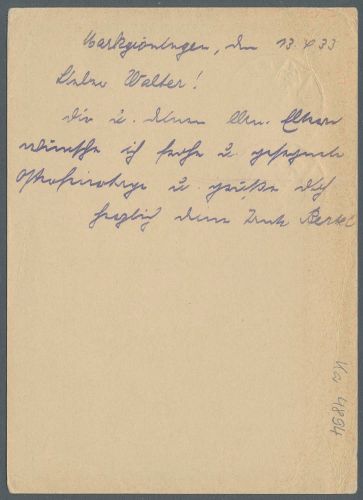 Markgröningen, den 13.4.33
Lieber Walter!
Dir u. deinen lbn. Eltern
wünsche ich frohe u. gesegnete
Osterfeiertage u. grüße dich
herzlich deine Tante Bertel
Ka 4894